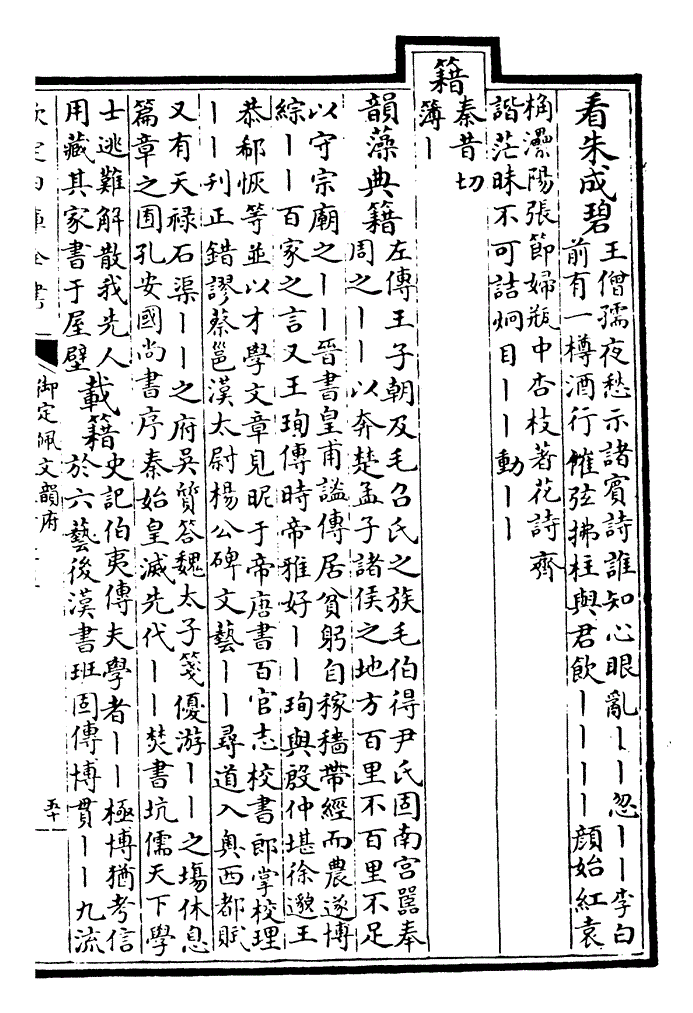 看朱成碧
王僧孺夜愁示諸賓詩誰知心眼亂丨丨忽丨丨李白
前有一樽酒行催弦拂柱與君飲丨丨丨丨顔始紅袁
桷灤陽張節婦瓶中杏枝著花詩齊
諧茫昧不可詰炯目丨丨動丨丨
籍
秦昔切
簿丨
韻藻典籍
左傳王子朝及毛召氏之族毛伯得尹氏固南宫嚚奉
周之丨丨以奔楚孟子諸侯之地方百里不百里不足
以守宗廟之丨丨晉書皇甫謐傳居貧躬自稼穡帶經而農遂博
綜丨丨百家之言又王珣傳時帝雅好丨丨珣與殷仲堪徐邈王
恭郗恢等並以才學文章見昵于帝唐書百官志校書郎掌校理
丨丨刊正錯謬蔡邕漢太尉楊公碑文藝丨丨尋道入奥西都賦
又有天禄石渠丨丨之府吳質答魏太子箋優游丨丨之塲休息
篇章之囿孔安國尚書序秦始皇滅先代丨丨焚書坑儒天下學
士逃難解散我先人
用藏其家書于屋壁
載籍
史記伯夷傳夫學者丨丨極博猶考信
於六藝後漢書班固傳博貫丨丨九流
欽定四庫全書
御定佩文韻府
五十